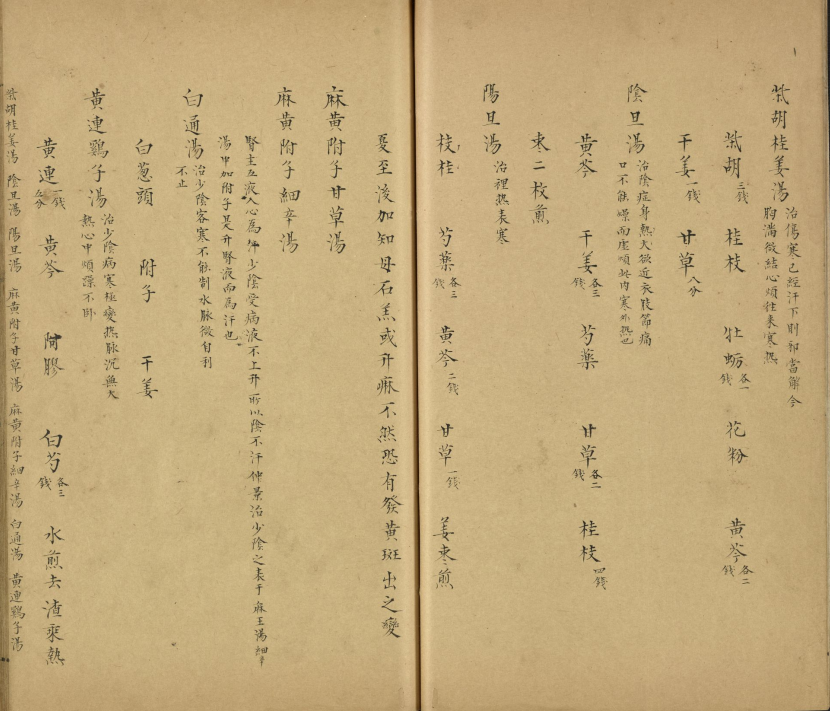 柴胡桂姜湯 治傷寒已經汗下則和當解今
胸滿微結心煩往来寒热
柴胡三錢 桂枝 牡蛎各一錢 花粉 黃芩各二錢
干姜一錢 甘草八分
陰旦湯 治陰症身熱大欲近衣肢節痛
口不能燥而虛煩此内寒外热也
黃芩 干姜各三錢 芍藥 甘草各二錢 桂枝四錢
枣二枚煎
陽旦湯 治裡热表寒
桂枝 芍藥各三錢 黃芩二錢 甘草一錢 姜枣煎
夏至後加知母石羔或升麻不然恐有發黃斑出之變
麻黃附子甘草湯
麻黃附子細辛湯
腎主五液入心為汗少陰受病液不上升所以陰不汗仲景治少陰之表于麻王湯細辛
湯中加附子是升腎液而為汗也
白通湯 治少陰客寒不能制水脉微自利
不止
白葱頭 附子 干姜
黃連鷄子湯 治少陰病寒極變热脉沉無大
熱心中煩譟不卧
黃連一錢五分 黃芩 阿膠 白芍各三錢 水煎去渣乘熱
柴胡桂姜湯 陰旦湯 陽旦湯 麻黃附子甘草湯 麻黃附子細辛湯 白通湯 黃連鷄子湯